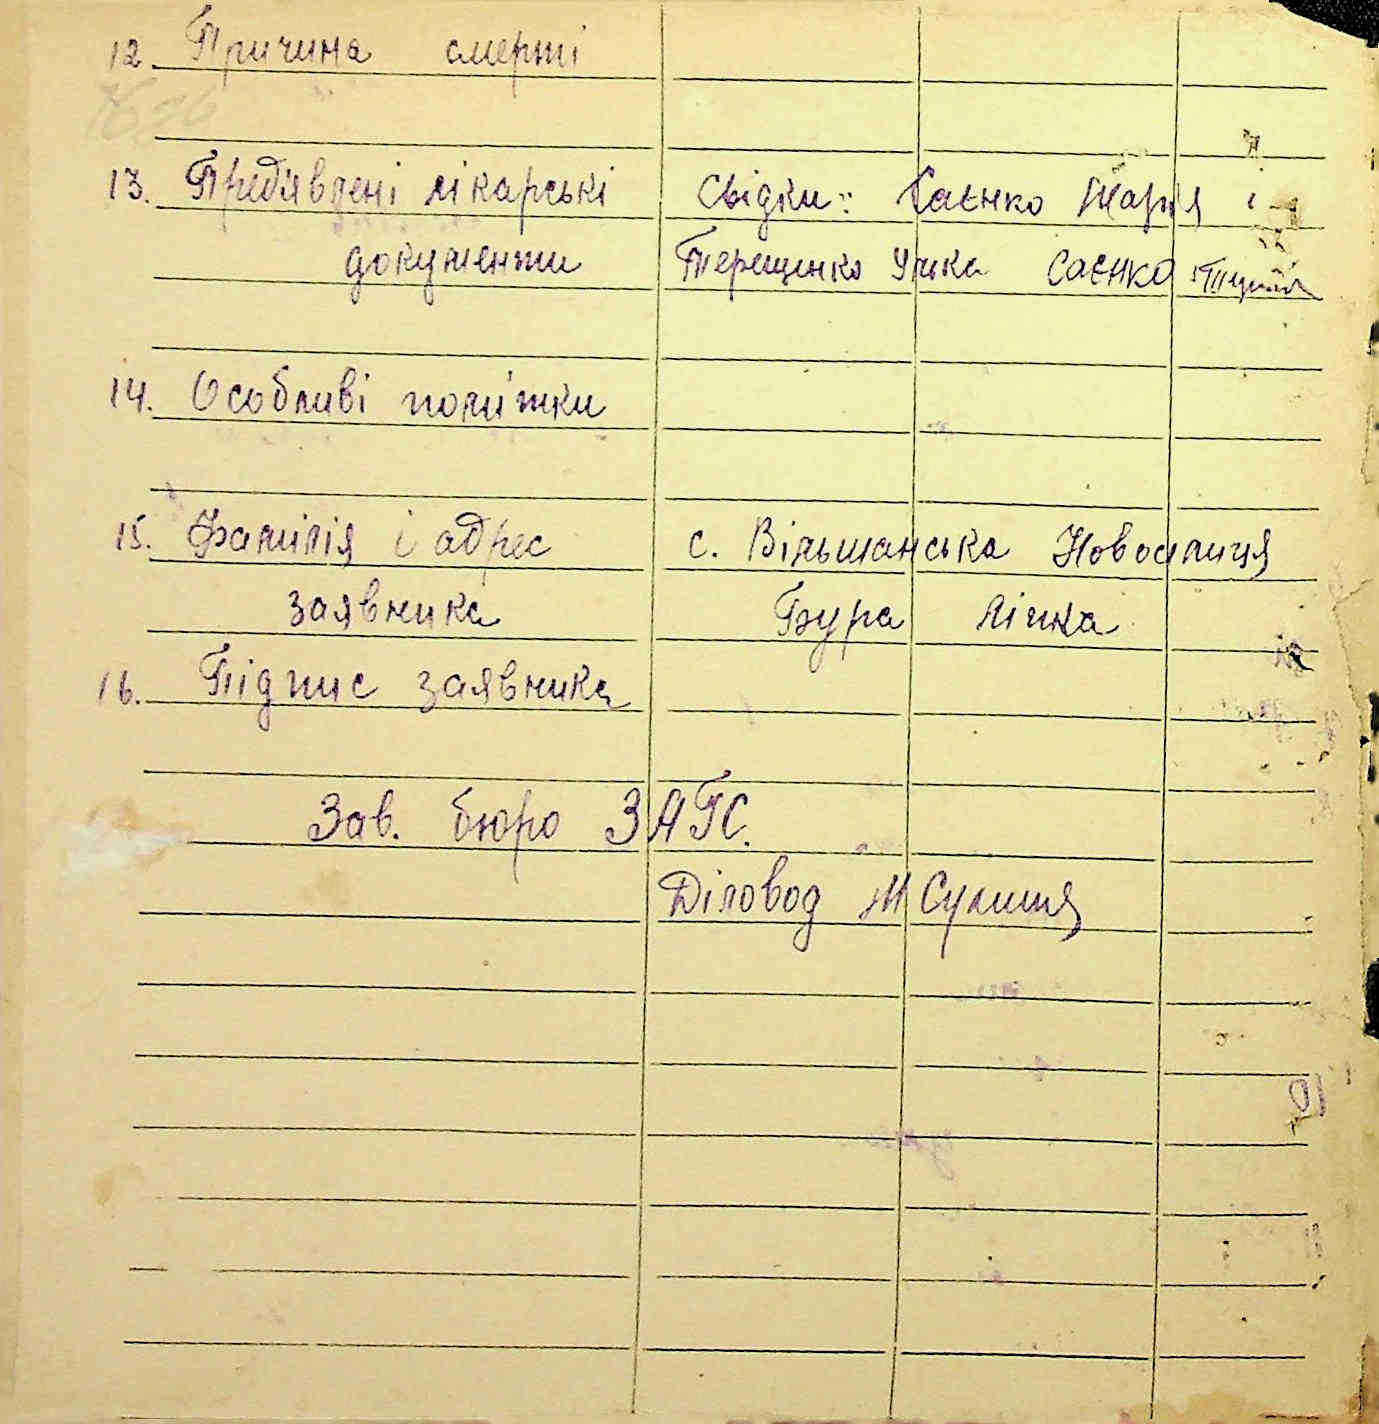 12. Причина смерті
13. Предіявлені лікарські Свідки: Саєнко Марія і
документи Терещенко Улька Саєнко
14. Особливі помітки
15. Фамилія і адрес с. Вільшанська Новоселиця
заявника Бура
16. Підпис заявника
Зав. бюро ЗАГС.
Діловод